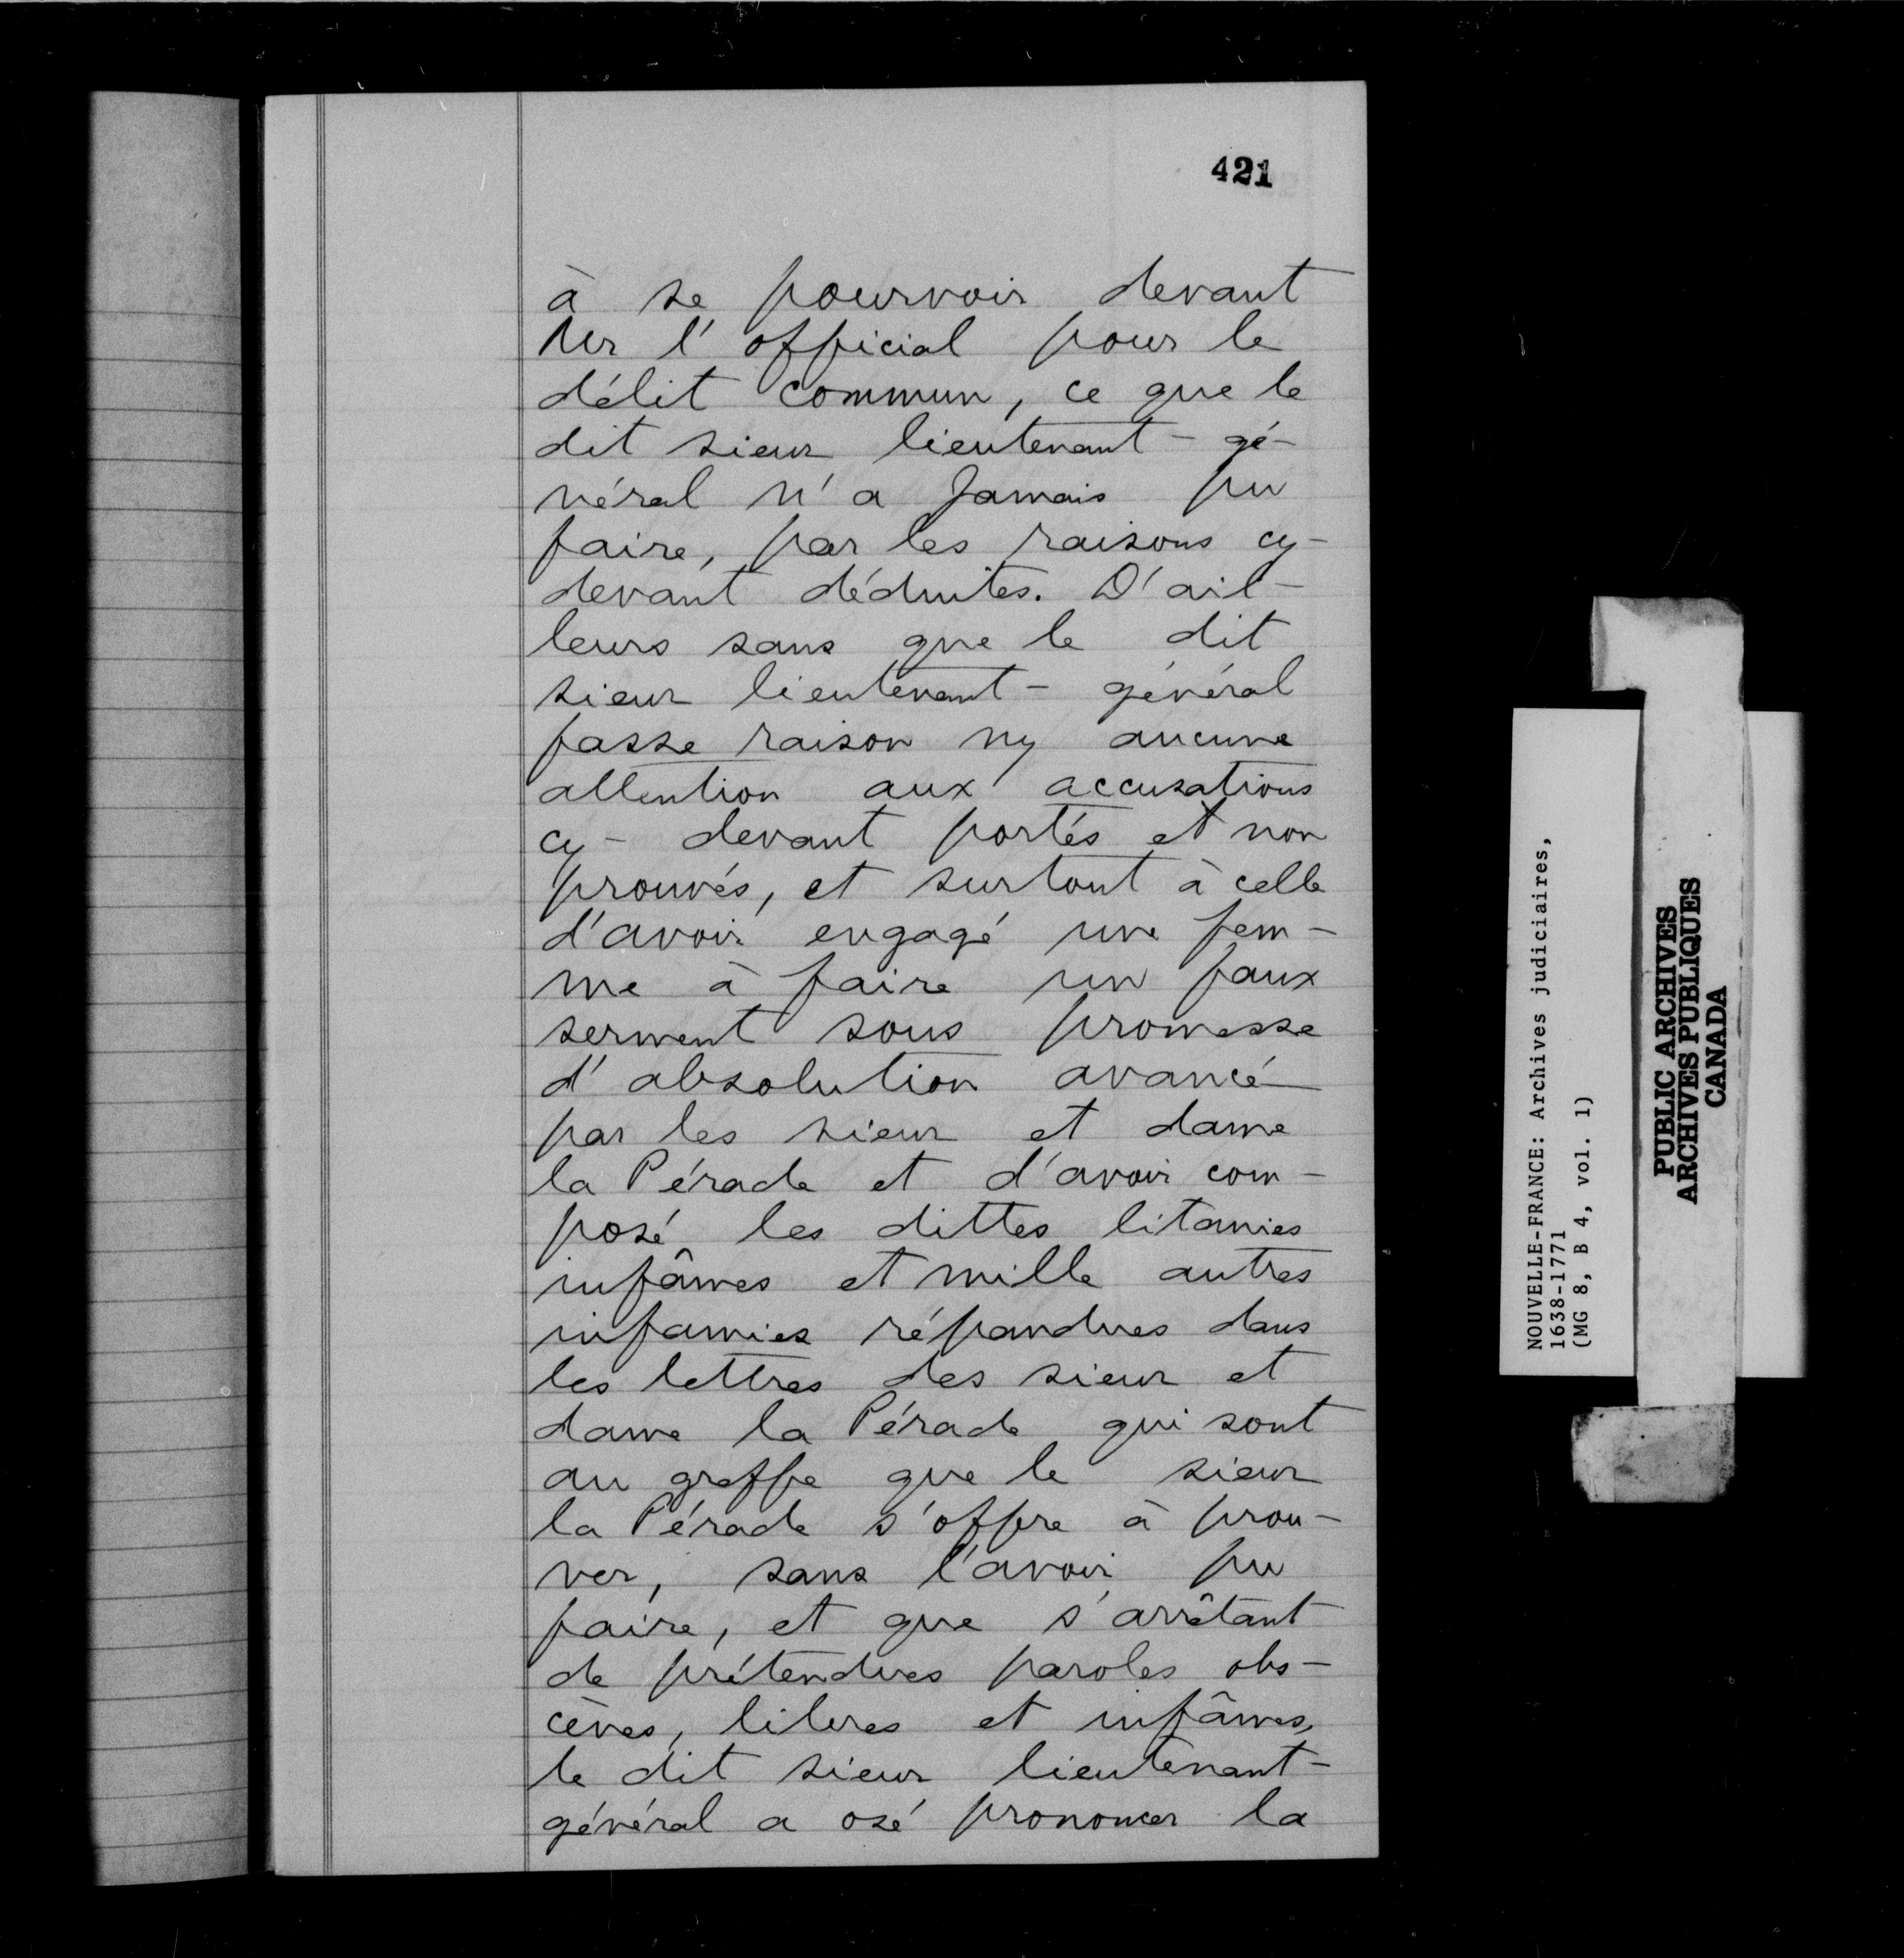 421
à se pourvoir devant
Mr l'official pour le
délit commun, ce que le
dit sieur lieutenant-gé-
néral n'a Jamais pu
faire, par les raisons cy-
devant déduites. D'ail-
leurs sans que le dit
sieur lieutenant-général
fasse raison ny aucune
attention aux accusations
cy-devant portés et non
prouvés, et surtout à celle
d'avoir engagé une fem-
me à faire un faux
serment sous promesse
d'absolution avancé
par les sieur et dame
la Pérade et d'avoir com-
posé les dittes litanies
infâmes et mille autres
infamies répandues dans
les lettres des sieur et
dame la Pérade qui sont
au greffe que le sieur
la Pérade s'offre à prou-
ver, sans l'avoir pu
faire, et que s'arrêtant
de prétendues paroles obs-
cènes, libres et infâmes,
le dit sieur lieutenant-
général a osé prononcer la
NOUVELLE-FRANCE: Archives judiciaires,
1638-1771
(MG 8, B 4, vol. 1)
PUBLIC ARCHIVES
ARCHIVES PUBLIQUES
CANADA